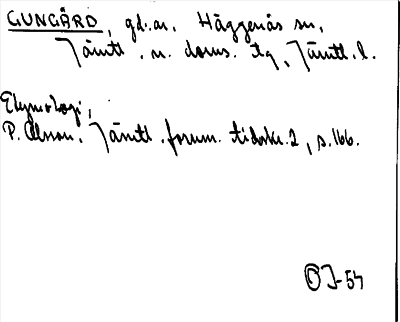 GUNGÅRD, gd:ar. Häggenås sn,
Jämtl. n. doms. tg, Jämtl. l.
Etymologi,
P. Olsson. Jämtl. fornm. tidskr. 2, s. 166.
OJ-54